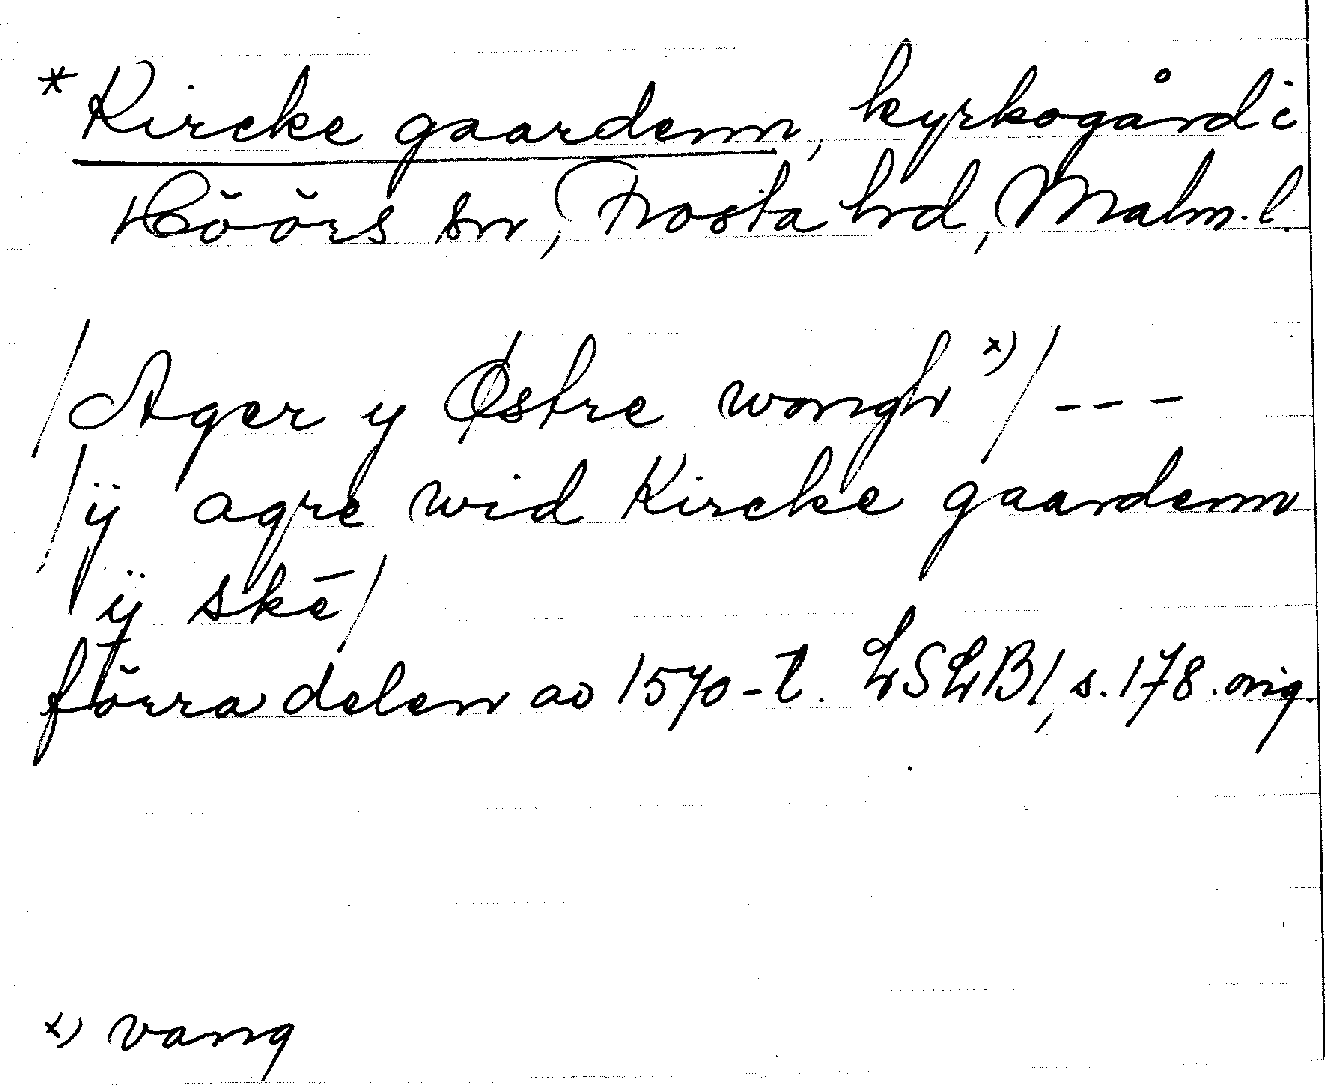 * Kircke gaardenn, kyrkogård i
Höörs sn, Frosta hd, Malm. l.
/Ager y Østre wongh x)/ - - -
/ÿ agre wid Kircke gaardenn
ÿ skē/
förra delen av 1570-t. LSLB1, s. 178. orig.
x) vang